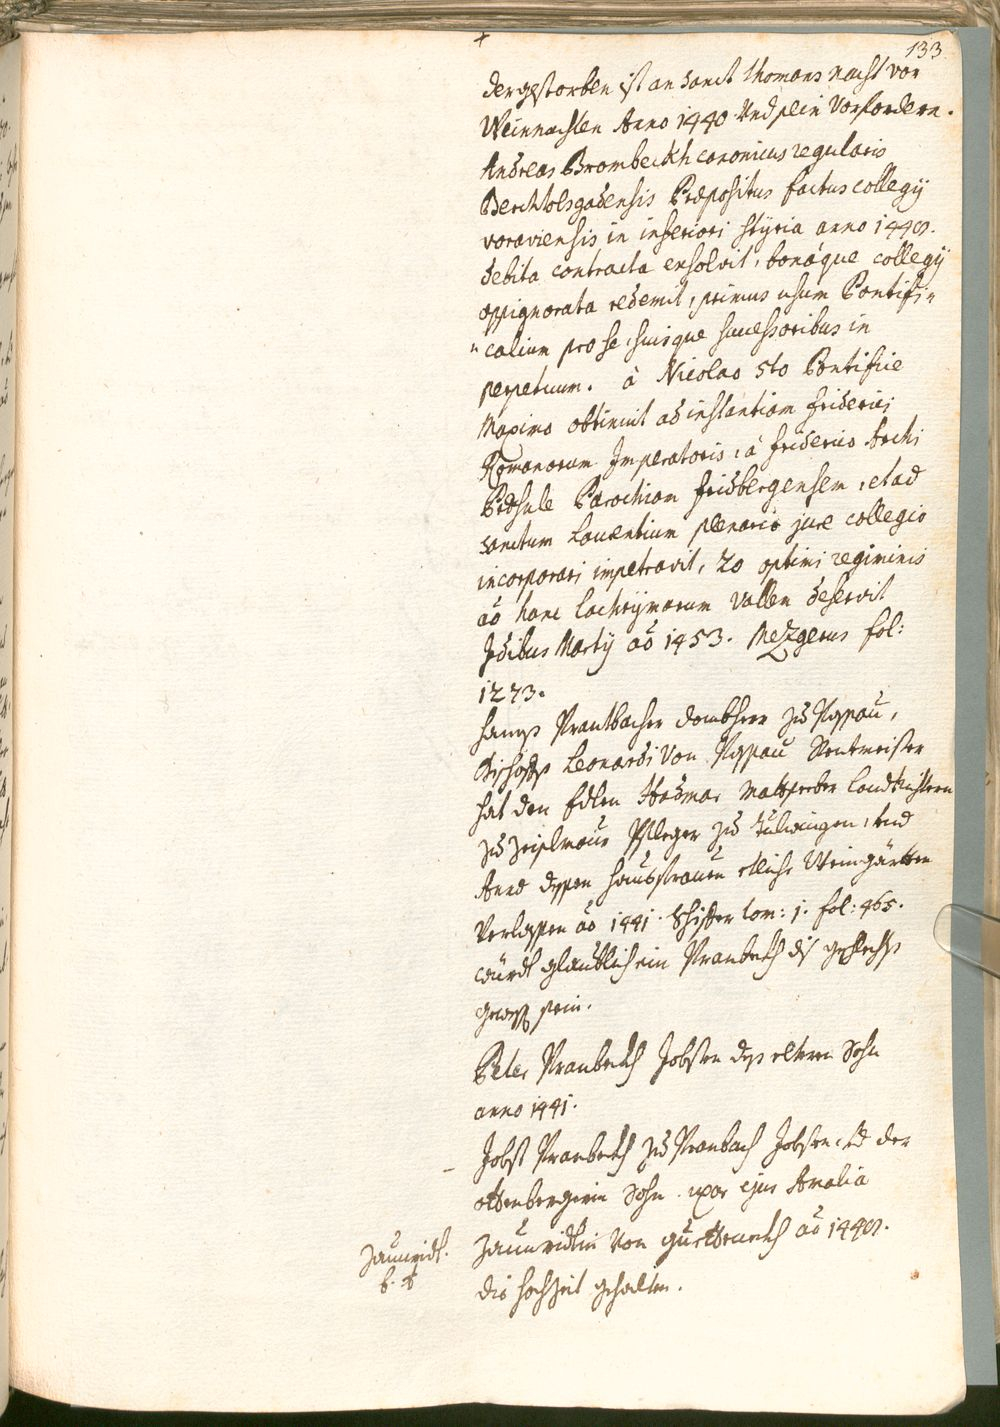 133
der gestorben ist an Sanct Thomans nacht vor
Weinnachten Anno 1440 Und sein Vorfordern.
Andreas Brombeckh canonicus regularis
Berchtolsgadensis Præpositus factus collegy
voraviensis in inferiori styria anno 1449.
debita contracta exsolvit, bonáque collegÿ
oppignorata redemit, primus usum Pontifi=
=calium pro se, suisque successoribus in
perpetuum. à Nicolao 5to Pontifice
Maximo obtinuit ad instantiam friderici
Romanorum Imperatoris, à friderico Archi
Præsule Parochiam fridbergensem, et ad
sanctum Laurentium plenario jure collegio
incorporari impetravit, 20 optimi regiminis
ao hanc lachrÿmarum Vallem deseruit
Idibus Martÿ ao 1453. Mezgerus fol:
1273.
Hannß Prantbacher dombherr zu Passau,
Bischoffs Leonardi Von Passau Rentmeister
hat den Edlen Hadmar Mattseeber Landtrichtern
zu Zeiselmaur Pfleger zu Tulwingen, Und
Anna dessen haußfrauen etliche Weingärtten
Verlassen ao 1441. Schiffer tom: j. fol: 465.
würdt glaublich ein Pranbeckh diß geschlechts
gewest sein.
Peter Pranbeckh Jobsten deß eltern Sohn
anno 1441.
Jobst Pranbeckh zu Pranbach Jobsten, Ud der
ottenbergerin Sohn. uxor ejus Amalia
Zaunridtin Von guettenekh ao 1449.
die hochzeit gehalten.
Zaunridt.
b. t